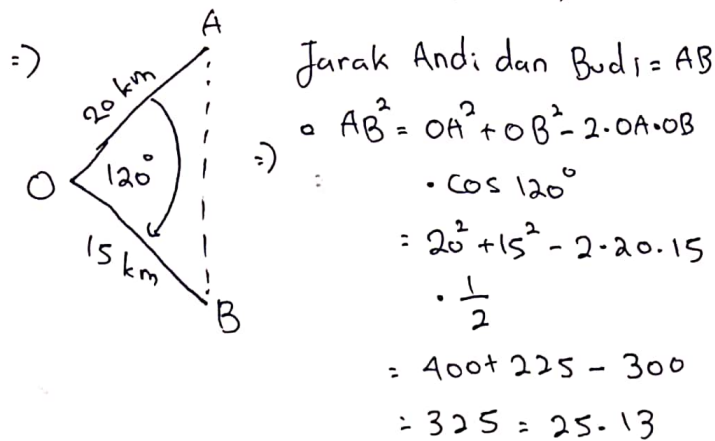 =)
A
20 km
O
120°
15 km
B
Jarak Andi dan Budi = AB
=)
• AB² = OA² + OB² - 2·OA·OB
· cos 120°
= 20² + 15² - 2·20·15
· 1/2
= 400 + 225 - 300
= 325 = 25·13